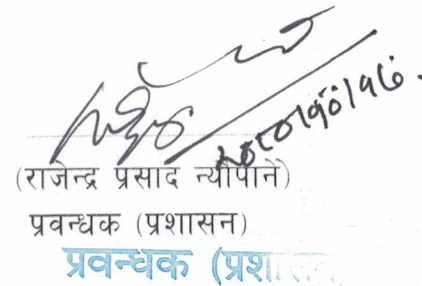 (राजेन्द्र प्रसाद न्यौपाने)
प्रवन्धक (प्रशासन)
प्रवन्धक (प्रशासन